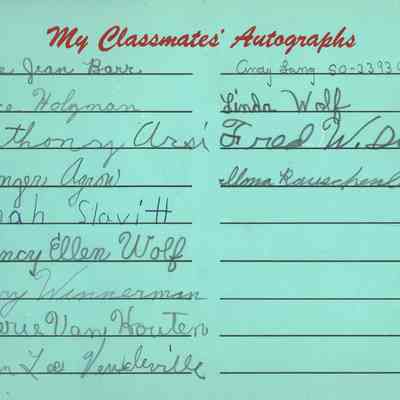 My Classmates' Autographs
e Jean Barr
ce Holzman
thony Arsi
nger Agrow
ah Slavitt
ncy Ellen Wolf
ry Winnerman
erie Van Houten
n Lee
Andy Lang SO-23930
Linda Wolf
Fred W. D
Ilona Rauschenb